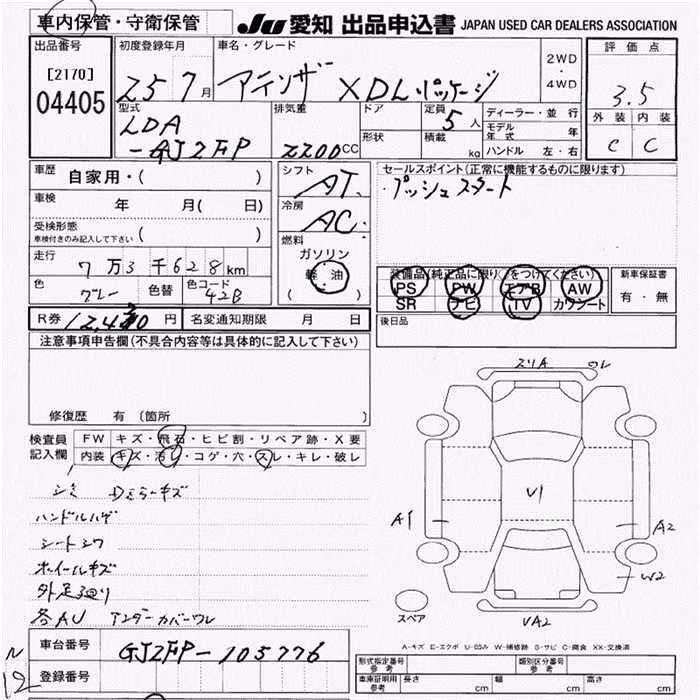 車内保管・守衛保管 JU 愛知 出品申込書 JAPAN USED CAR DEALERS ASSOCIATION
出品番号 初度登録年月 車名・グレード 2WD・4WD 評価点
[2170] 04405 25 7月 アテンザ XDLパッケージ 3.5
型式 排気量 ドア 定員 5人 ディーラー・並行 外装 内装
LDA 形状 積載 モデル年式 年 C C
-GJ2FP 2200cc kg ハンドル 左・右
車歴 自家用・( ) シフト AT セールスポイント(正常に機能するものに限ります)
車検 年 月( 日) 冷房 AC プッシュスタート
受検形態
車検付きのみ記入して下さい ( ) 燃料
走行 7万3千628km ガソリン 装備品(純正品に限り○をつけてください) 新車保証書
色 グレー 色替 色コード 42B 軽油 ( ) PS PW エアB AW 有・無
SR ナビ TV カワシート
R券 円 名変通知期限 月 日 後日品
注意事項申告欄(不具合内容等は具体的に記入して下さい)
修復歴 有 (箇所
検査員 FW キズ・飛石・ヒビ割・リペア跡・X要
記入欄 内装 キズ・汚れ・コゲ・穴・スレ・キレ・破レ
シミ Dミラーキズ
ハンドルハゲ
シートシワ
ホイールキズ
外足廻り
各AU アンダーカバーワレ
スリA
V1
A1 A2
W2
スペア VA2
A-キズ E-エクボ U-凹み W-補修跡 S-サビ C-腐食 XX-交換済
車台番号 GJ2FP-105776
登録番号
形式指定番号 参考 類別区分番号 参考
車庫証明用 参考 長さ cm 幅 cm 高さ cm